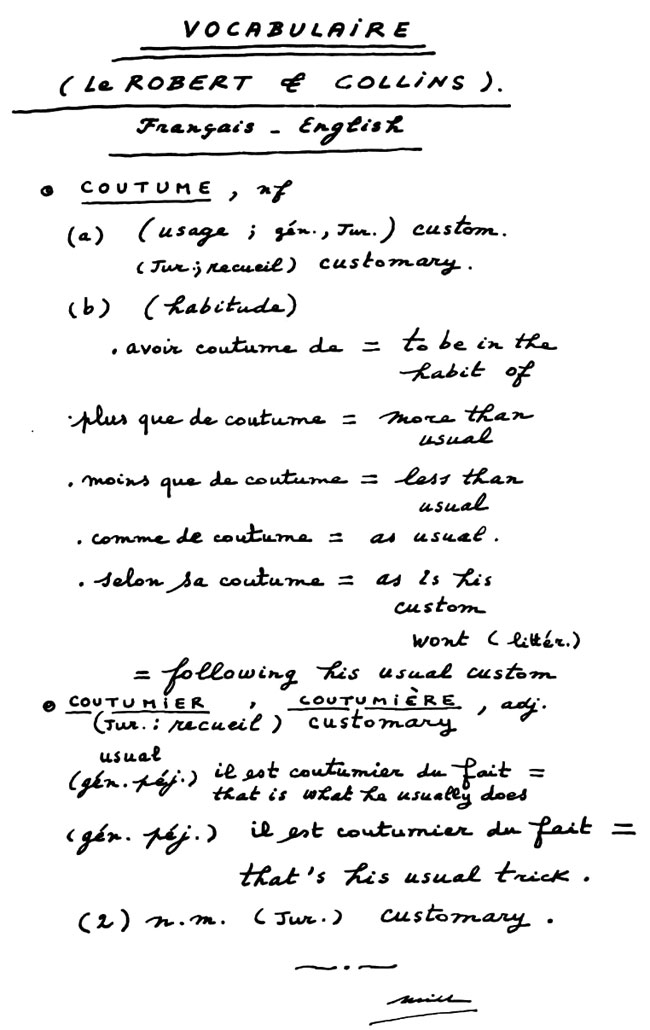 VOCABULAIRE
(Le ROBERT & COLLINS).
Français - English
• COUTUME, nf
(a) (usage ; gén., Jur.) custom.
(Jur ; recueil) customary.
(b) (habitude)
. avoir coutume de = to be in the
habit of
. plus que de coutume = more than
usual
. moins que de coutume = less than
usual
. comme de coutume = as usual.
. selon sa coutume = as is his
custom
wont (littér.)
= following his usual custom
• COUTUMIER, COUTUMIÈRE, adj.
(Jur. : recueil) customary
usual
(gén. péj.) il est coutumier du fait =
that is what he usually does
(gén. péj.) il est coutumier du fait =
that's his usual trick.
(2) n.m. (Jur.) customary.